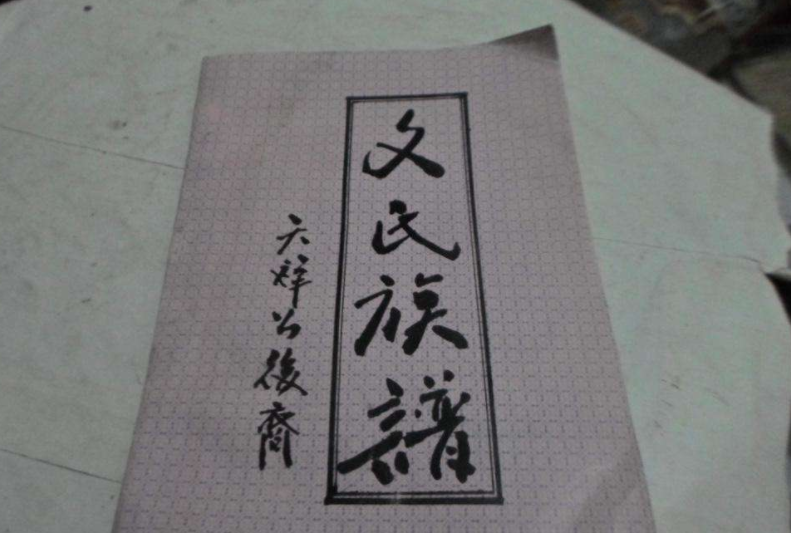 文氏族譜
天祥公後裔